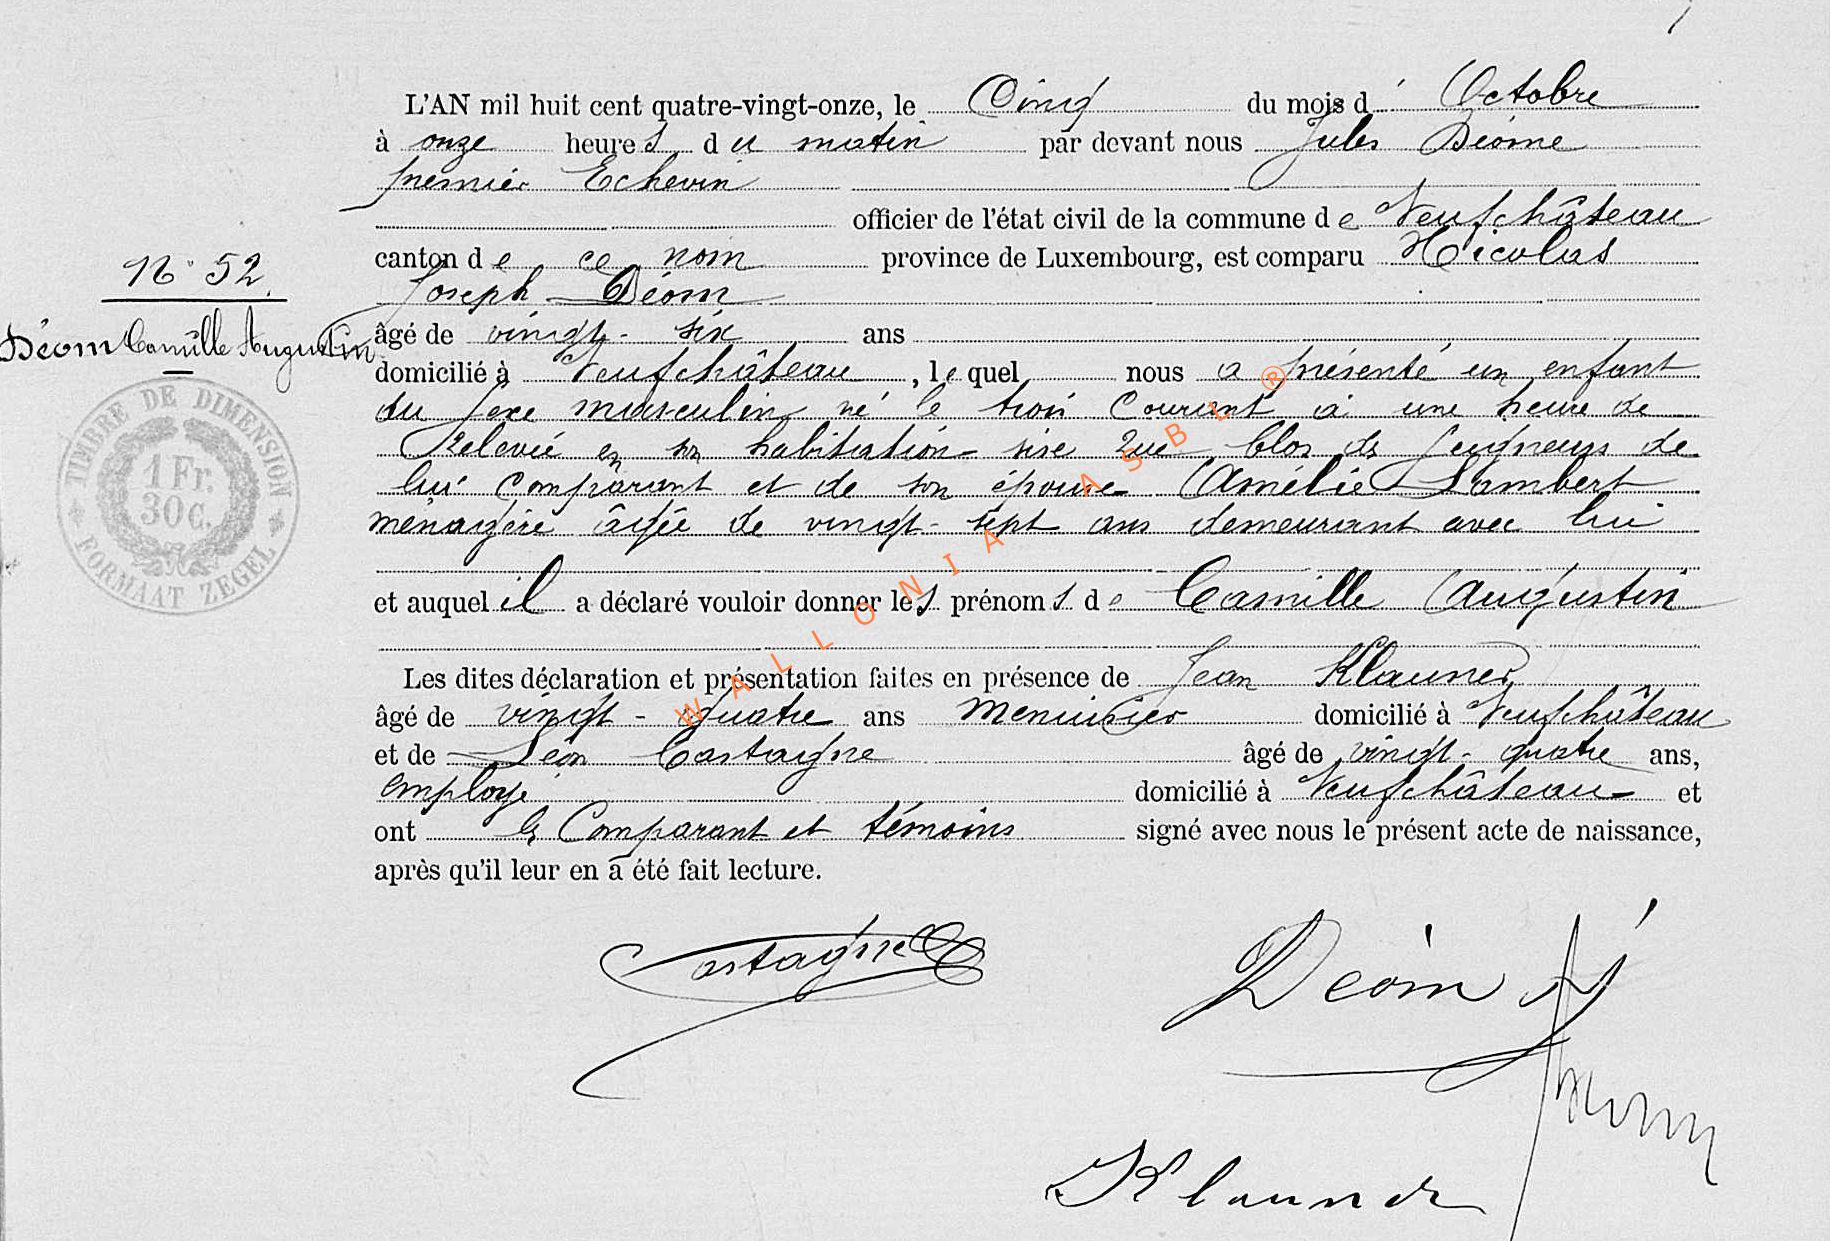 L'AN mil huit cent quatre-vingt-onze, le Cinq du mois d' Octobre
à onze heures du matin par devant nous Jules Déome
premier Echevin
officier de l'état civil de la commune de Neufchâteau
canton de ce nom province de Luxembourg, est comparu Nicolas
Joseph Déom
âgé de vingt-six ans
domicilié à Neufchâteau, lequel nous a présenté un enfant
du sexe masculin né le trois Courant à une heure de
Relevée en son habitation sise Rue Clos des Seigneurs de
lui comparant et de son épouse Amélie Lambert
ménagère âgée de vingt-sept ans demeurant avec lui
et auquel il a déclaré vouloir donner les prénoms de Camille Augustin
Les dites déclaration et présentation faites en présence de Jean Klauner
âgé de vingt-quatre ans Menuisier domicilié à Neufchâteau
et de Léon Castagne âgé de vingt-quatre ans,
employé domicilié à Neufchâteau et
ont les Comparant et témoins signé avec nous le présent acte de naissance,
après qu'il leur en a été fait lecture.
N° 52.
Déom Camille Augustin
TIMBRE DE DIMENSION
1 Fr.
30 C.
FORMAAT ZEGEL
WALLONIA ASBL ®
Castagne
Déom
Klauner